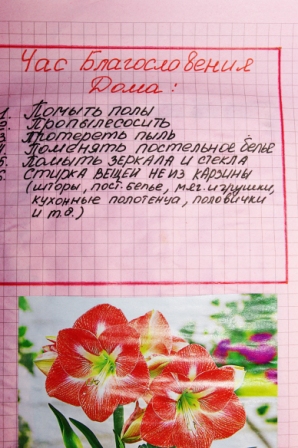 Час Благословения
Дома:
1. Помыть полы
2. Пропылесосить
3. Потереть пыль
4. Поменять постельное белье
5. Помыть зеркала и стекла
6. Стирка вещей не из карзины
(шторы, пост. белье, мяг. игрушки,
кухонные полотенца, половички
и т.д.)